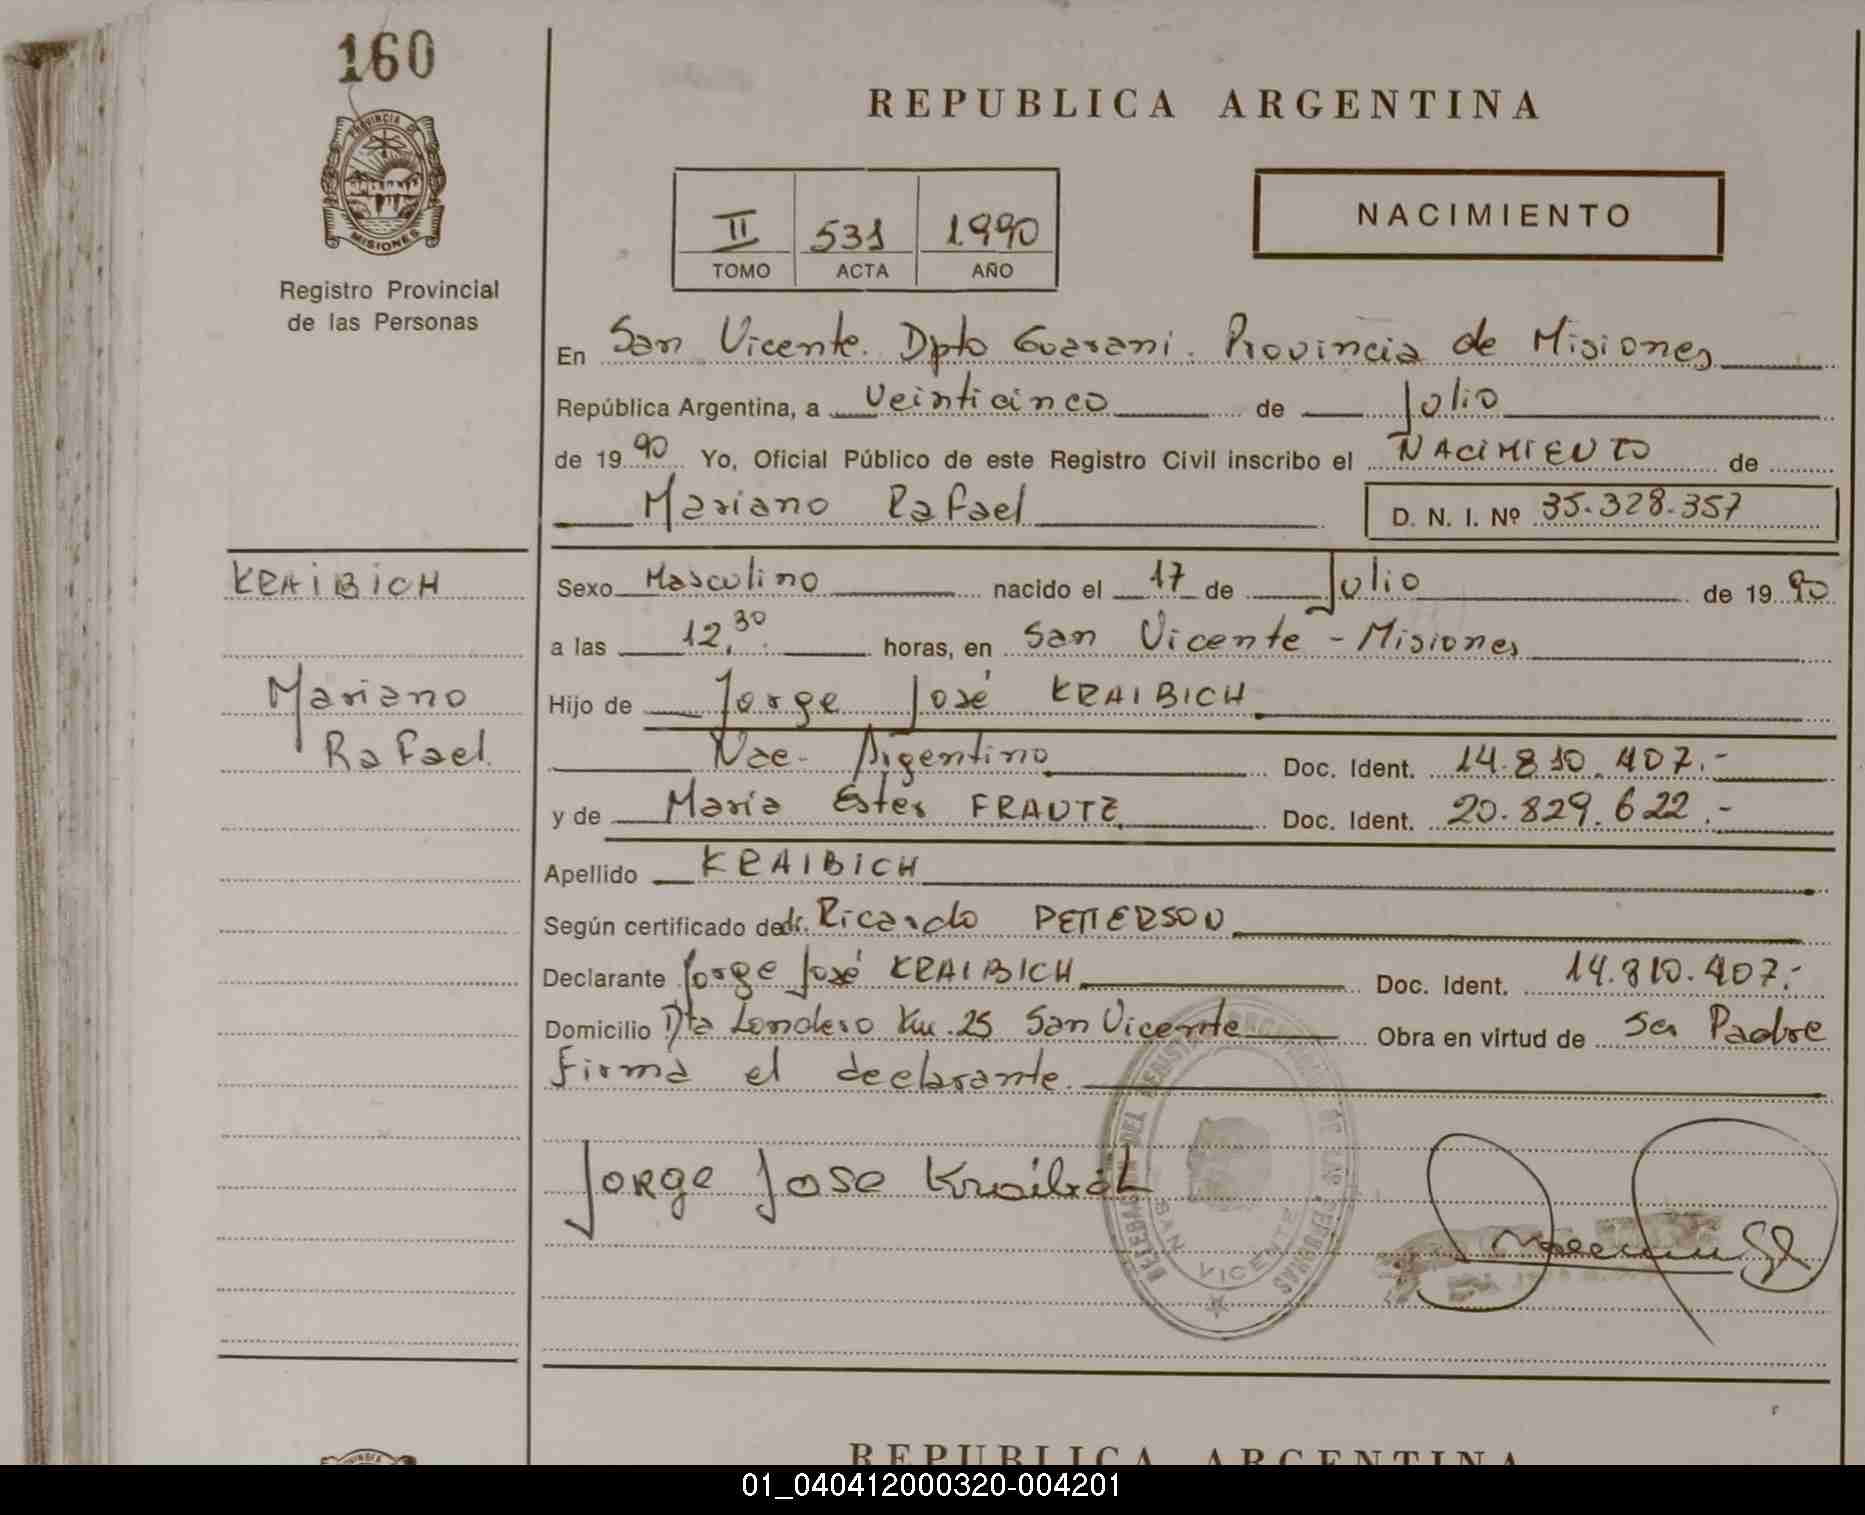 160
PROVINCIA DE
MISIONES
Registro Provincial
de las Personas
REPUBLICA ARGENTINA
II 531 1990
TOMO ACTA AÑO
NACIMIENTO
En San Vicente. Dpto Guarani. Provincia de Misiones
República Argentina, a veinticinco de Julio
de 1990 Yo, Oficial Público de este Registro Civil inscribo el NACIMIENTO de
Mariano Rafael D. N. I. Nº 35.328.357
KRAIBICH
Mariano
Rafael.
Sexo Masculino nacido el 17 de Julio de 1990
a las 12,30 horas, en San Vicente - Misiones
Hijo de Jorge José KRAIBICH
Nac. Argentino Doc. Ident. 14.810.407.-
y de María Ester FRAUTZ Doc. Ident. 20.829.622.-
Apellido KRAIBICH
Según certificado de dr. Ricardo PETTERSON
Declarante Jorge José KRAIBICH Doc. Ident. 14.810.407.-
Domicilio Pta Londero Km. 25 San Vicente Obra en virtud de ser Padre
Firma el declarante.
Jorge Jose Kraibich
SAN VICENTE
REPUBLICA ARGENTINA
01_040412000320-004201